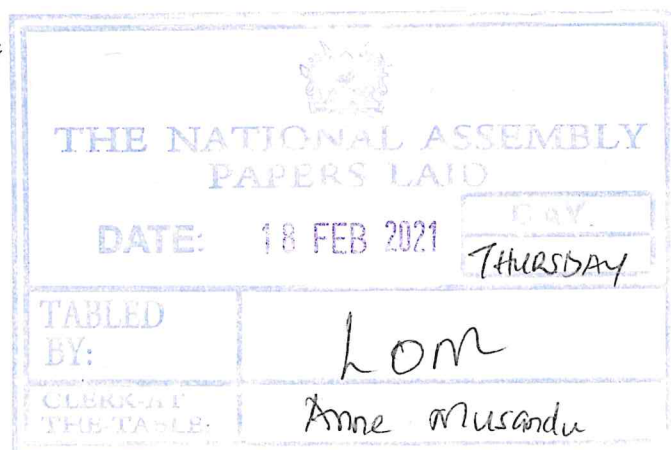 THE NATIONAL ASSEMBLY
PAPERS LAID
DATE: 18 FEB 2021 DAY.
THURSDAY
TABLED
BY: LOM
CLERK-AT
THE-TABLE: Anne Musandu